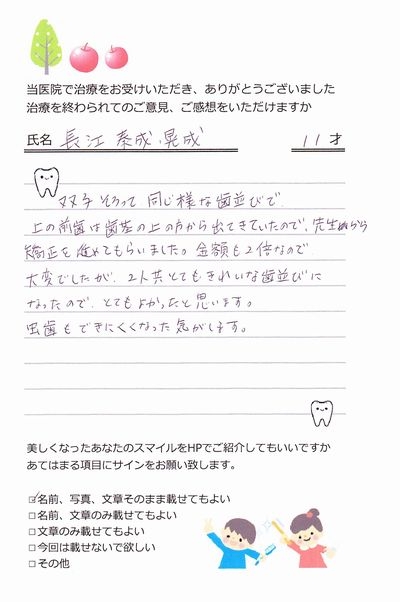 当医院で治療をお受けいただき、ありがとうございました
治療を終わられてのご意見、ご感想をいただけますか
氏名 長江 泰成・晃成 11才
双子そろって同じ様な歯並びで、
上の前歯は歯茎の上の方から出てきていたので、先生から
矯正を進めてもらいました。金額も2倍なので
大変でしたが、2人共とてもきれいな歯並びに
なったので、とてもよかったと思います。
虫歯もできにくくなった気がします。
美しくなったあなたのスマイルをHPでご紹介してもいいですか
あてはまる項目にサインをお願い致します。
☑名前、写真、文章そのまま載せてもよい
□名前、文章のみ載せてもよい
□文章のみ載せてもよい
□今回は載せないで欲しい
□その他